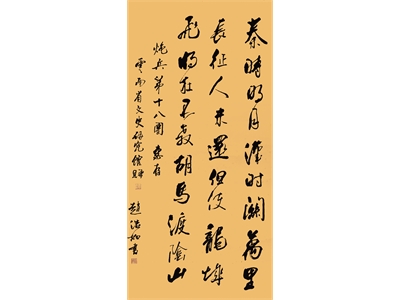 秦時明月漢时關萬里
長征人未還但使龍城
飛將在不教胡馬渡陰山
炮兵第十八團 惠存
雲南省文史研究館贈
趙浩如書